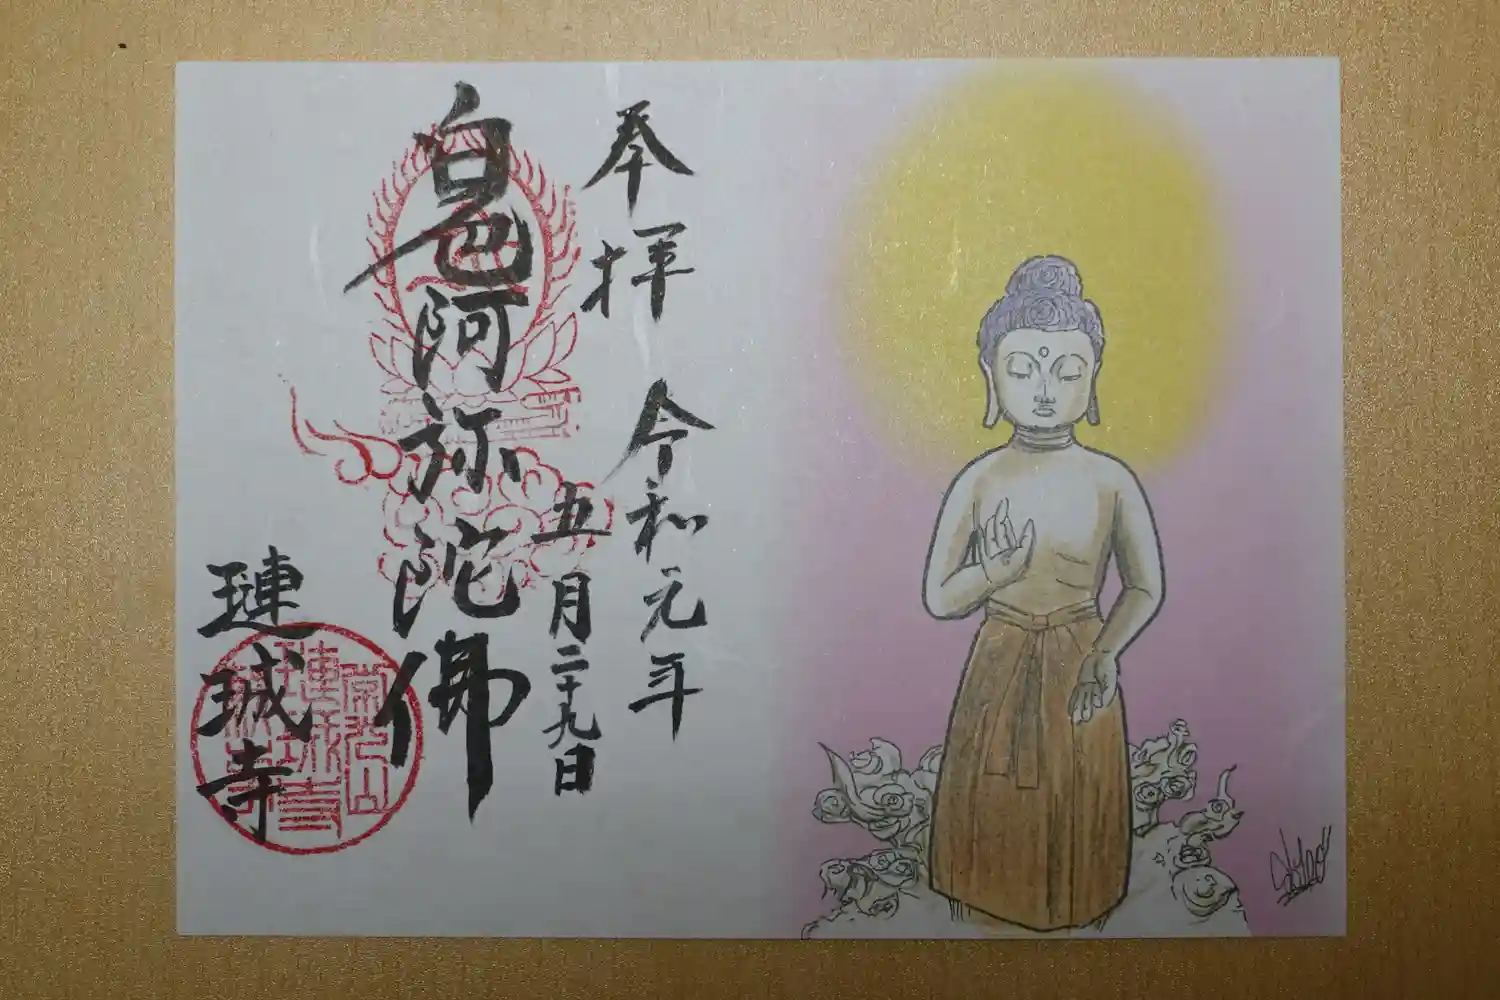 奉拝
令和元年
五月二十九日
白色阿弥陀佛
璉珹寺